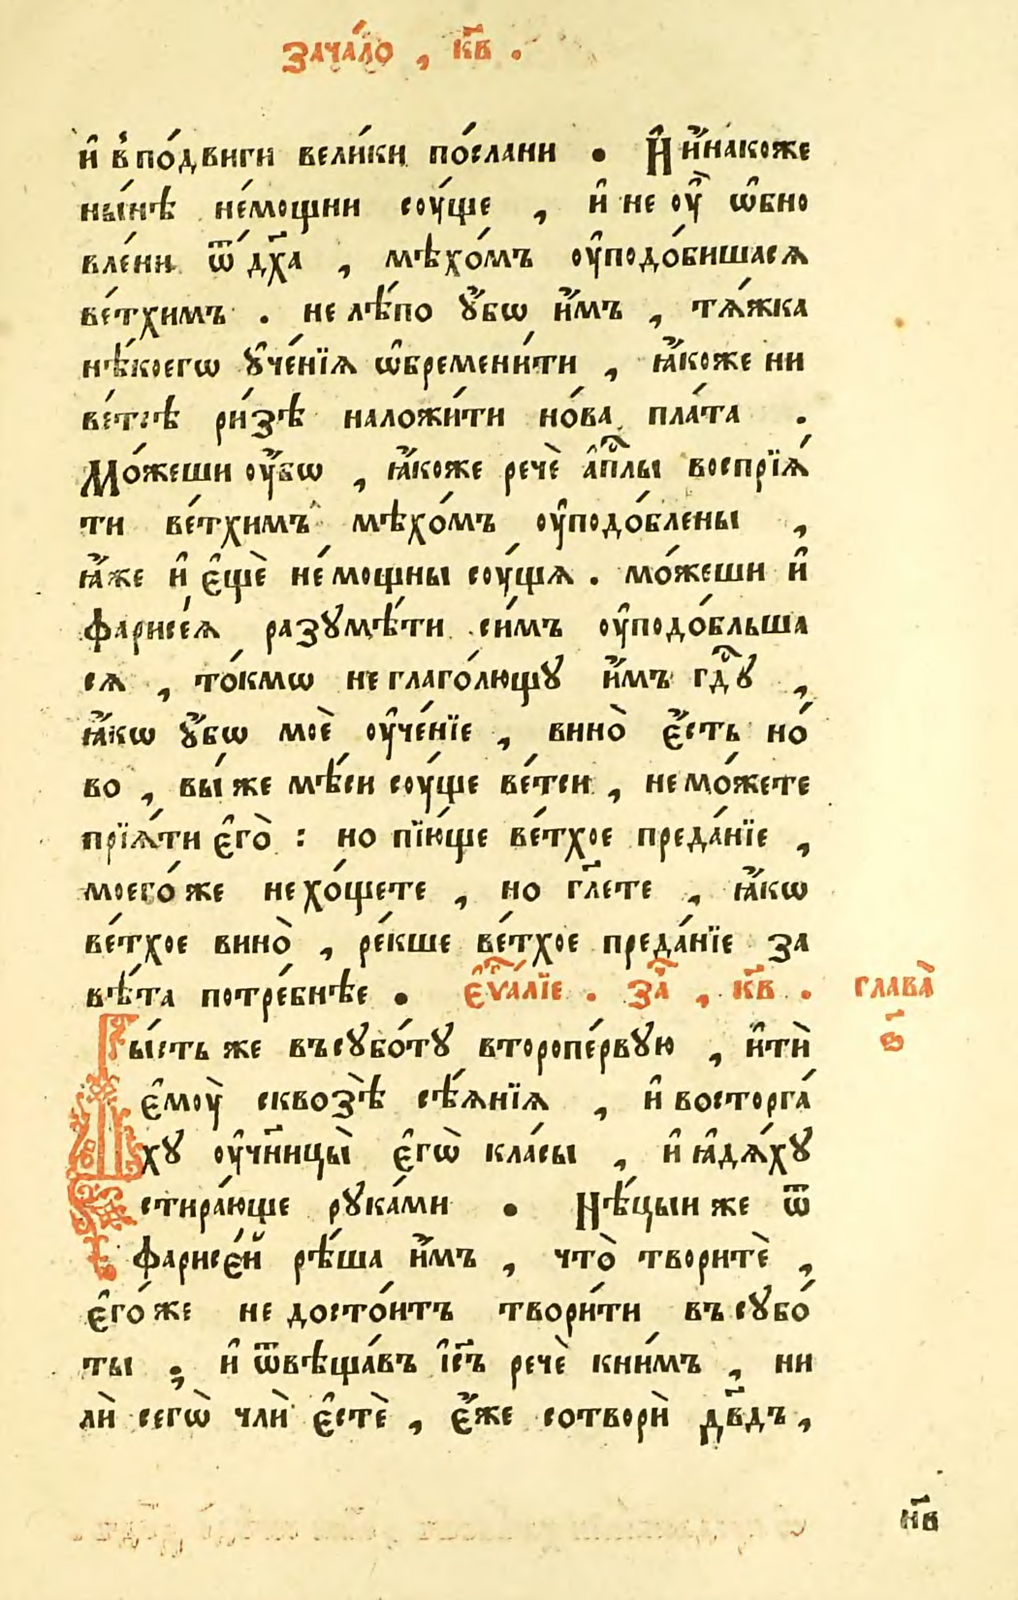 Зача́ло , к҃в .
и҆ в̾по́двиги вели́ки по́слани . И҆ и҆́накоже
ны́нѣ не́мощни соу́ще , и҆ не оу҆̀ ѡ҆бно
вле́ни ѿ дх҃а , мѣхо́мъ оу҆подо́бишася
ве́тхимъ . не лѣ́по ᲂу҆́бѡ и҆́мъ , тѧ́жка
нѣ́коегѡ ᲂу҆че́нїѧ ѡ҆бремени́ти , ꙗ҆́коже ни
ве́тсѣ ри́зѣ наложи́ти но́ва пла́та .
Мо́жеши оу҆́бѡ , ꙗ҆́коже речѐ а҆пⷭ҇лы воспрїѧ́
ти ве́тхимъ мѣхо́мъ оу҆подо́блены ,
ꙗ҆́же и҆ є҆щѐ не́мощны соу́щѧ . мо́жеши и҆
фарисе́ѧ разꙋмѣ́ти си́мъ оу҆подо́бльша
сѧ , то́кмѡ не глаго́лющꙋ и҆́мъ гдⷭ҇ꙋ ,
ꙗ҆́кѡ ᲂу҆́бѡ моѐ оу҆че́нїе , вино̀ є҆́сть но́
во , вы́ же мѣ́си соу́ще ве́тси , не мо́жете
прїѧ́ти є҆го̀ : но пїю́ще ве́тхое преда́нїе ,
моего́ же не хо́щете , но гл҃ете , ꙗ҆́кѡ
ве́тхое вино̀ , ре́кше ве́тхое преда́нїе за
вѣ́та потре́бнѣе . є҆ѵⷢ҇а́лїе . заⷱ҇ , к҃в . глава̀
ꙅ҃
Бы́сть же въ сꙋбо́тꙋ второпе́рвꙋю , и҆тѝ
є҆моу̀ сквозѣ̀ сѣ́ѧнїѧ , и҆ восторга́
хꙋ оу҆чн҃ицы̀ є҆гѡ̀ кла́сы , и҆ ꙗ҆дѧ́хꙋ
стира́юще рꙋка́ми . Нѣ́цыи же ѿ
фарисе́й рѣ́ша и҆́мъ , что̀ творитѐ ,
є҆го́ же не досто́итъ твори́ти въ сꙋбо́
ты ; и҆ ѿвѣща́въ і҆и҃съ речѐ кни́мъ , ни
лѝ сегѡ̀ члѝ є҆стѐ , є҆́же сотворѝ дв҃дъ ,
н҃в